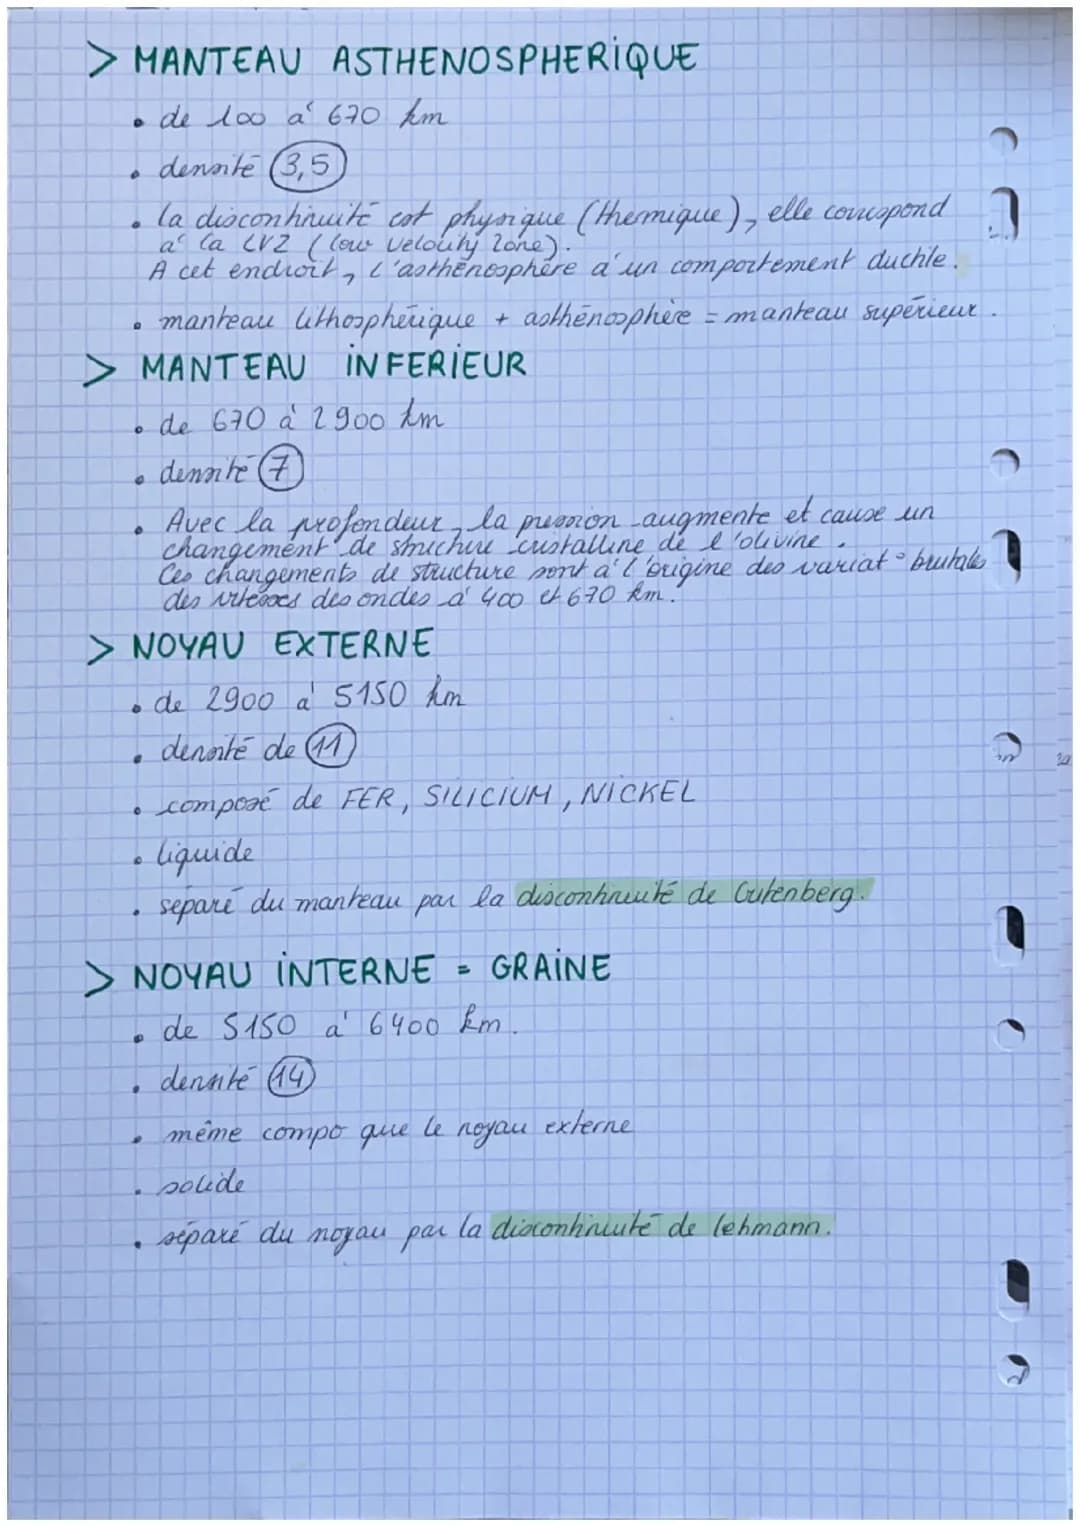 > MANTEAU ASTHENOSPHERIQUE
• de 100 à 670 km
• densité 3,5
• la discontinuité est physique (thermique), elle correspond
à la LVZ (low velocity zone).
A cet endroit, l'asthénosphère a un comportement ductile.
• manteau lithosphérique + asthénosphère = manteau supérieur.
> MANTEAU INFERIEUR
• de 670 à 2900 km
• densité 7
• Avec la profondeur, la pression augmente et cause un
changement de structure cristalline de l'olivine.
Ces changements de structure sont à l'origine des variat° brutales
des vitesses des ondes à 400 et 670 km.
> NOYAU EXTERNE
• de 2900 à 5150 km
• densité de 11
• composé de FER, SILICIUM, NICKEL
• liquide
• séparé du manteau par la discontinuité de Gutenberg.
> NOYAU INTERNE = GRAINE
• de 5150 à 6400 km.
• densité 14
• même compo que le noyau externe
• solide
• séparé du noyau par la discontinuité de lehmann.